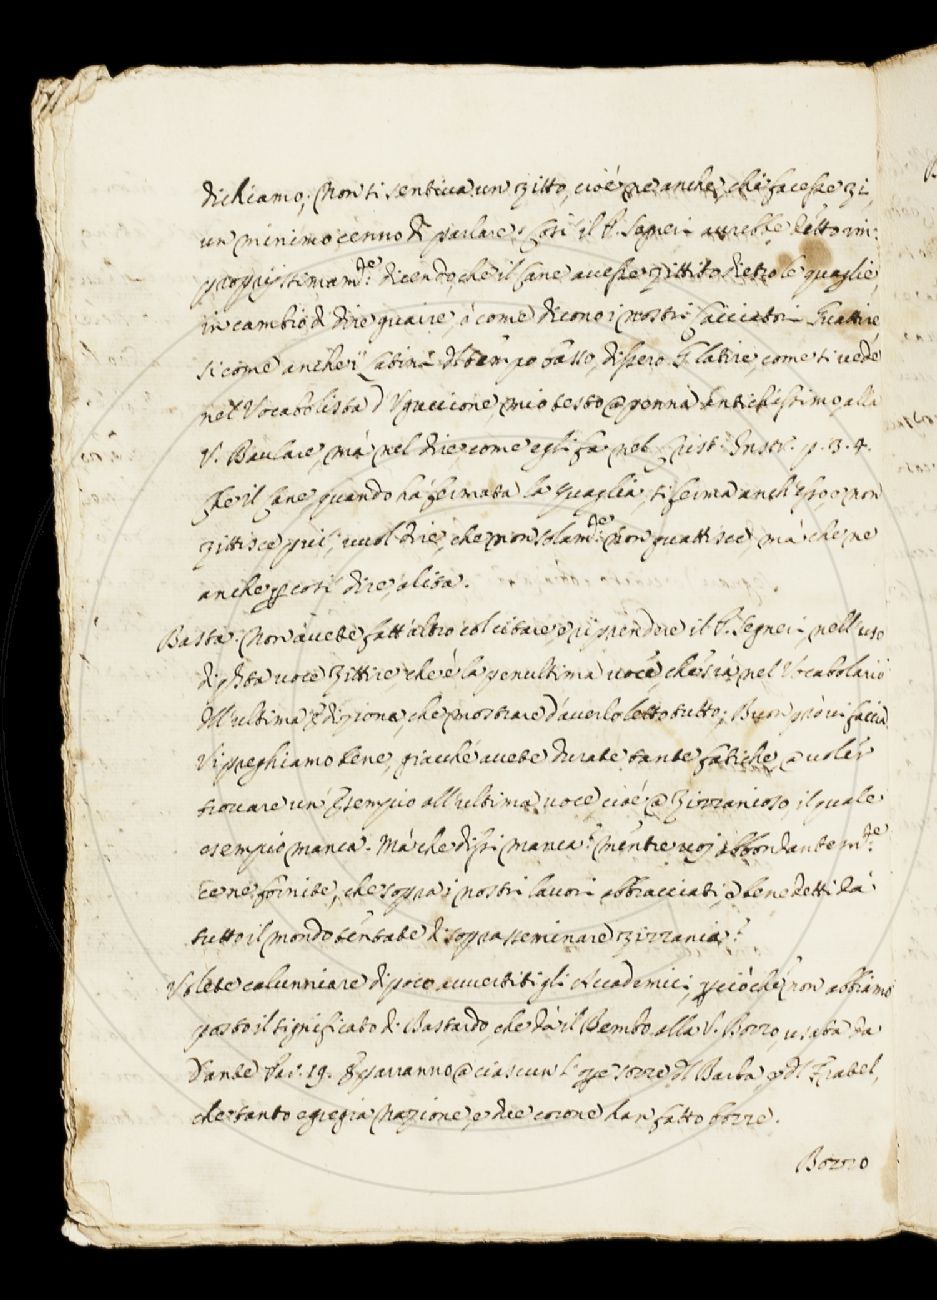 dichiamo; Non si sentiva un zitto, cioè ne anche chi facesse zi,
un minimo cenno di parlare. Così il P. Segneri avrebbe detto im-
proprissimam.te dicendo, che il Cane avesse zittito dietro le quaglie,
in cambio di dire guaire, ò come dicono i nostri Cacciatori Guattire
si come anche i Latini del tempo basso, dissero Glatire, come si vede
nel Vocabolista d'Uguccione, mio testo a penna antichissimo, alla
V. Baulare, mà nel dire come egli fa nel Crist. Instr. p. 3. 4.
Che il Cane, quando hà fermata la Quaglia, si ferma anch'esso, e non
zittisce più, vuol dire, che non solam.te non guattisce, mà che ne
anche p così dire, alita.
Basta. Non avete fatt'altro col citare e riprendere il P. Segneri, nell'uso
di q.sta voce Zittire, che è la penultima voce, che sia nel Vocabolario
dell'ultima Edizione, che mostrare d'averlo letto tutto; Buon prò vi faccia
Vi preghiamo bene, giacché avete durate tante fatiche, a voler
trovare un'Esempio all'ultima voce, cioè a Zizzanioso, il quale
esempio manca. Mà che dissi manca? mentre voi abbondantem.te
ce ne fornite, che sopra i nostri lavori abbracciati, e benedetti da
tutto il mondo tentate di soprasseminare zizzania?
Volete calunniare di poco avvertiti gli Accademici, p ciò che non abbiamo
posto il significato di Bastardo, che dà il Bembo alla V. Bozzo usata da
Dante Par. 19. E parranno a ciascun l'opre sozze, del Barba e del Fratel,
che tanto egregia Nazione, e due corone han fatto bozze.
Bozzo